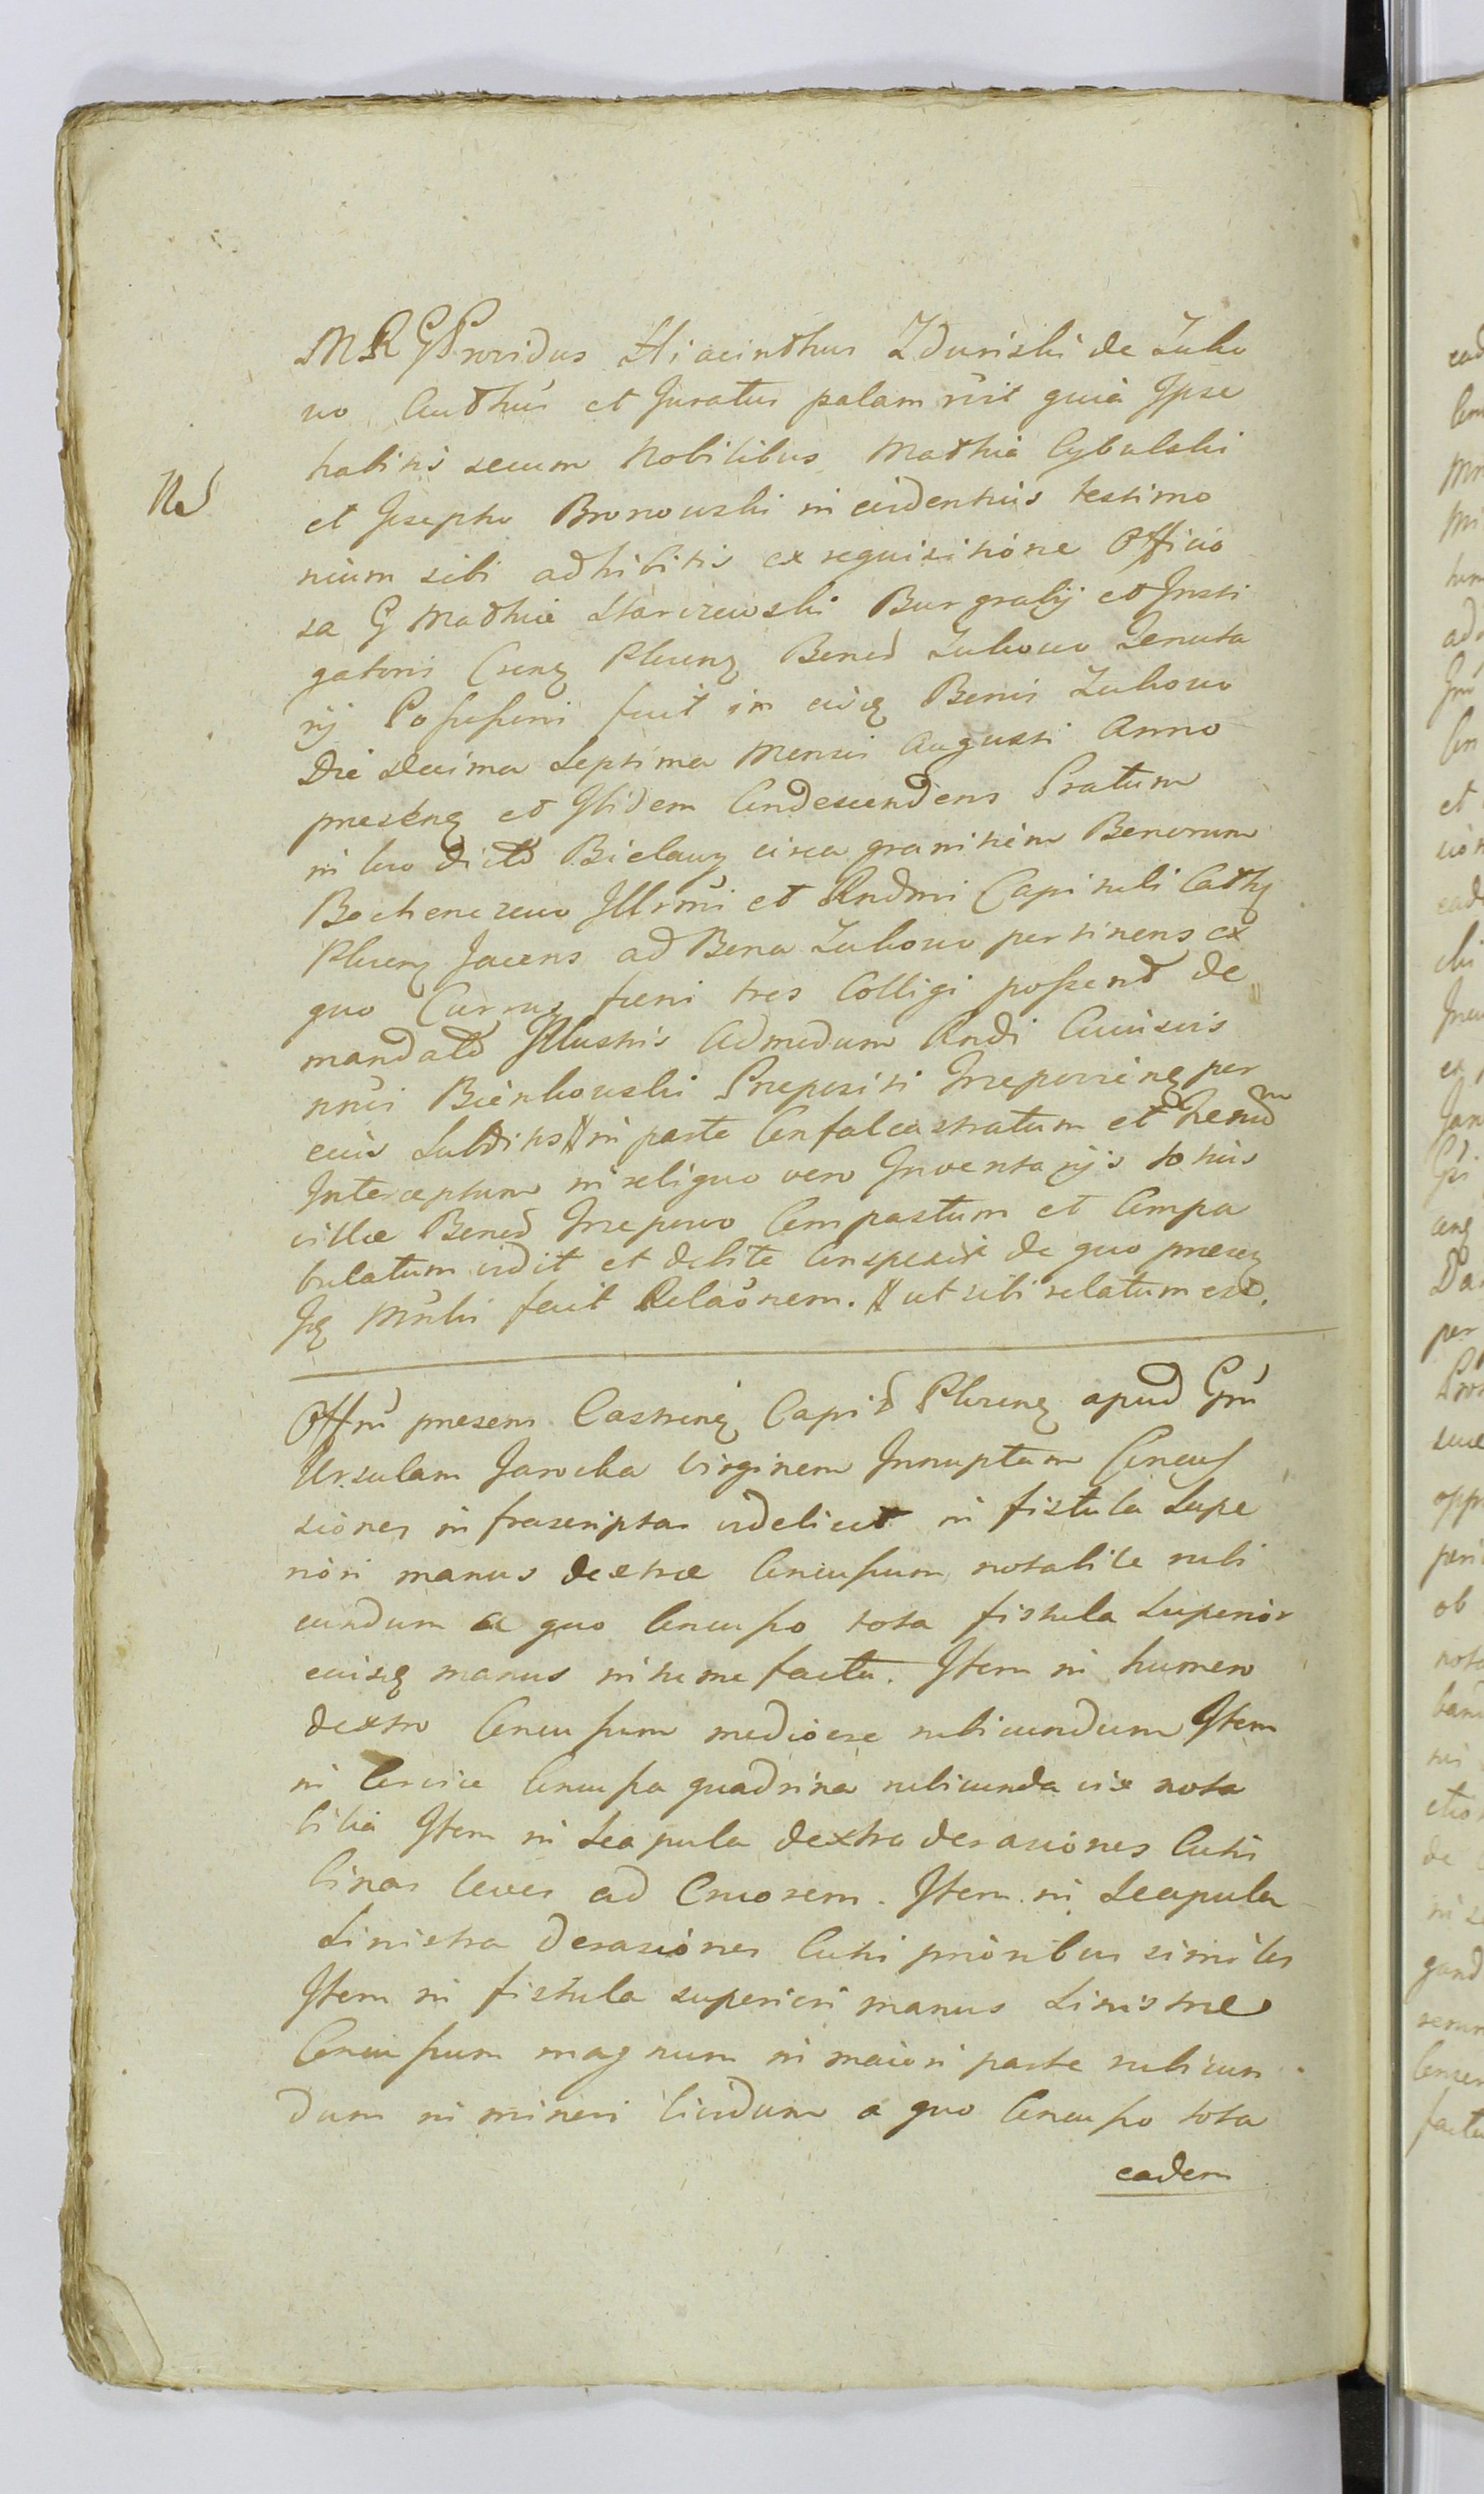 MRG Providus Hiacinthus Zdunski de Luko
wo Authus et Juratus palam rcit quia Ipse
habitis secum Nobilibus Mathia Cybulski
et Josepho Bronowski in evidentius testimo
nium sibi adhibitis ex requisitione Officio
sa G Mathiæ Starczewski Burgrabij et Insti
gatoris Crenq Plocenq Bonod Lukowo Tenuta
rij Possessoris fuit in eisq Bonis Lukowo
Die Decima Septima Mensis Augusti Anno
presenq et Ibidem Condescendens Pratum
in loco dicto Bielawy circa granitiem Bonorum
Bochenczewo Illrmi et Rndmi Capituli Cathq
Plocenq Jacens ad Bona Lukowo pertinens ex
quo Currus fœni tres Colligi possent de
mandato Illustris Admodum Rndi
Bienkowski Præpositi per
eius Subditos # in parte Confalcastratum et
Interceptum in reliquo vero Inventarijs totius
villæ Bonod Compastum et Compa
bulatum vidit et debite Conspexit de quo præsenq
Jq Mnlis fecit Relaonem. # ut sibi relatum est.
Nd
Offm presens Castrenq Capit Plocenq apud Gm
Ursulam Jarocka Virginem Innuptam Concus
siones infrascriptas videlicet in fistula Supe
riori manus dextræ Concussum notabile rubi
cundum a quo Concusso tota fistula Superior
eiusq manus intumefacta. Item in humero
dextro Concussum mediocre rubicundum Item
in Cervice Concussa quadrina rubicunda vix nota
bilia Item in Scapula dextra derasiones Cutis
binas leves ad Cruorem. Item in Scapula
Sinistra Derasiones Cutis prioribus similes
Item in fistula superiori manus Sinistræ
Concussum magnum in maiori parte rubicun
dum in minori lividum a quo Concusso tota
eadem